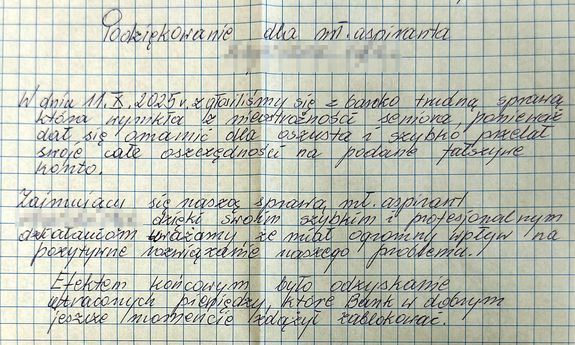 Podziękowanie dla mł. aspiranta
W dniu 11.X.2025r. zgłosiliśmy się z bardzo trudną sprawą
która wynikła z nieostrożności seniora, ponieważ
dał się omamić dla oszusta i szybko przelał
swoje całe oszczędności na podane fałszywe
konto.
Zajmujący się naszą sprawą mł. aspirant
dzięki swoim szybkim i profesjonalnym
działaniom uważamy że miał ogromny wpływ na
pozytywne rozwiązanie naszego problemu.
Efektem końcowym było odzyskanie
utraconych pieniędzy, które Bank w dobrym
jeszcze momencie zdążył zablokować.